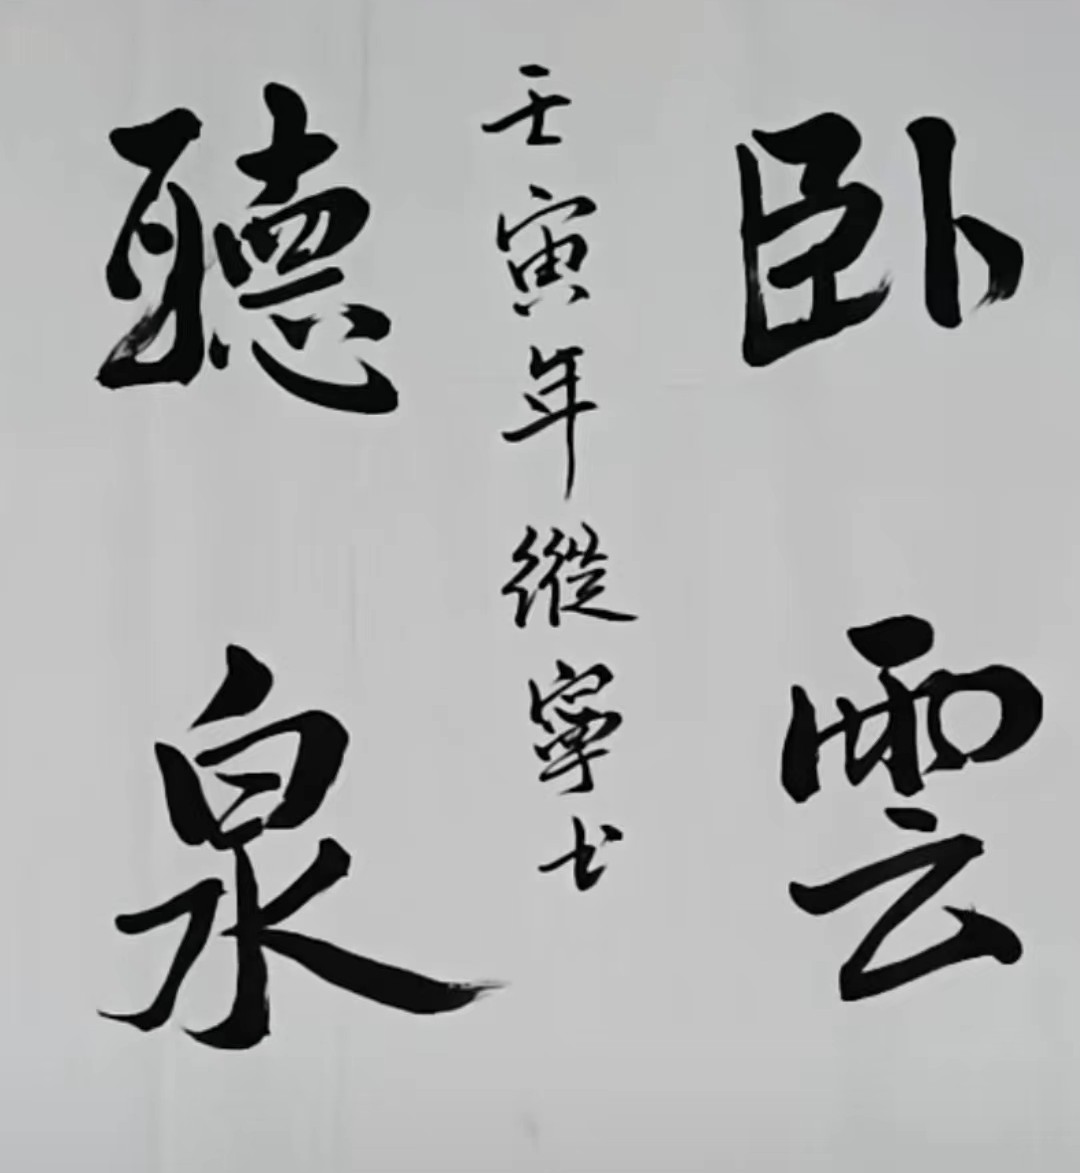 卧雲
壬寅年縱寧书
聽泉